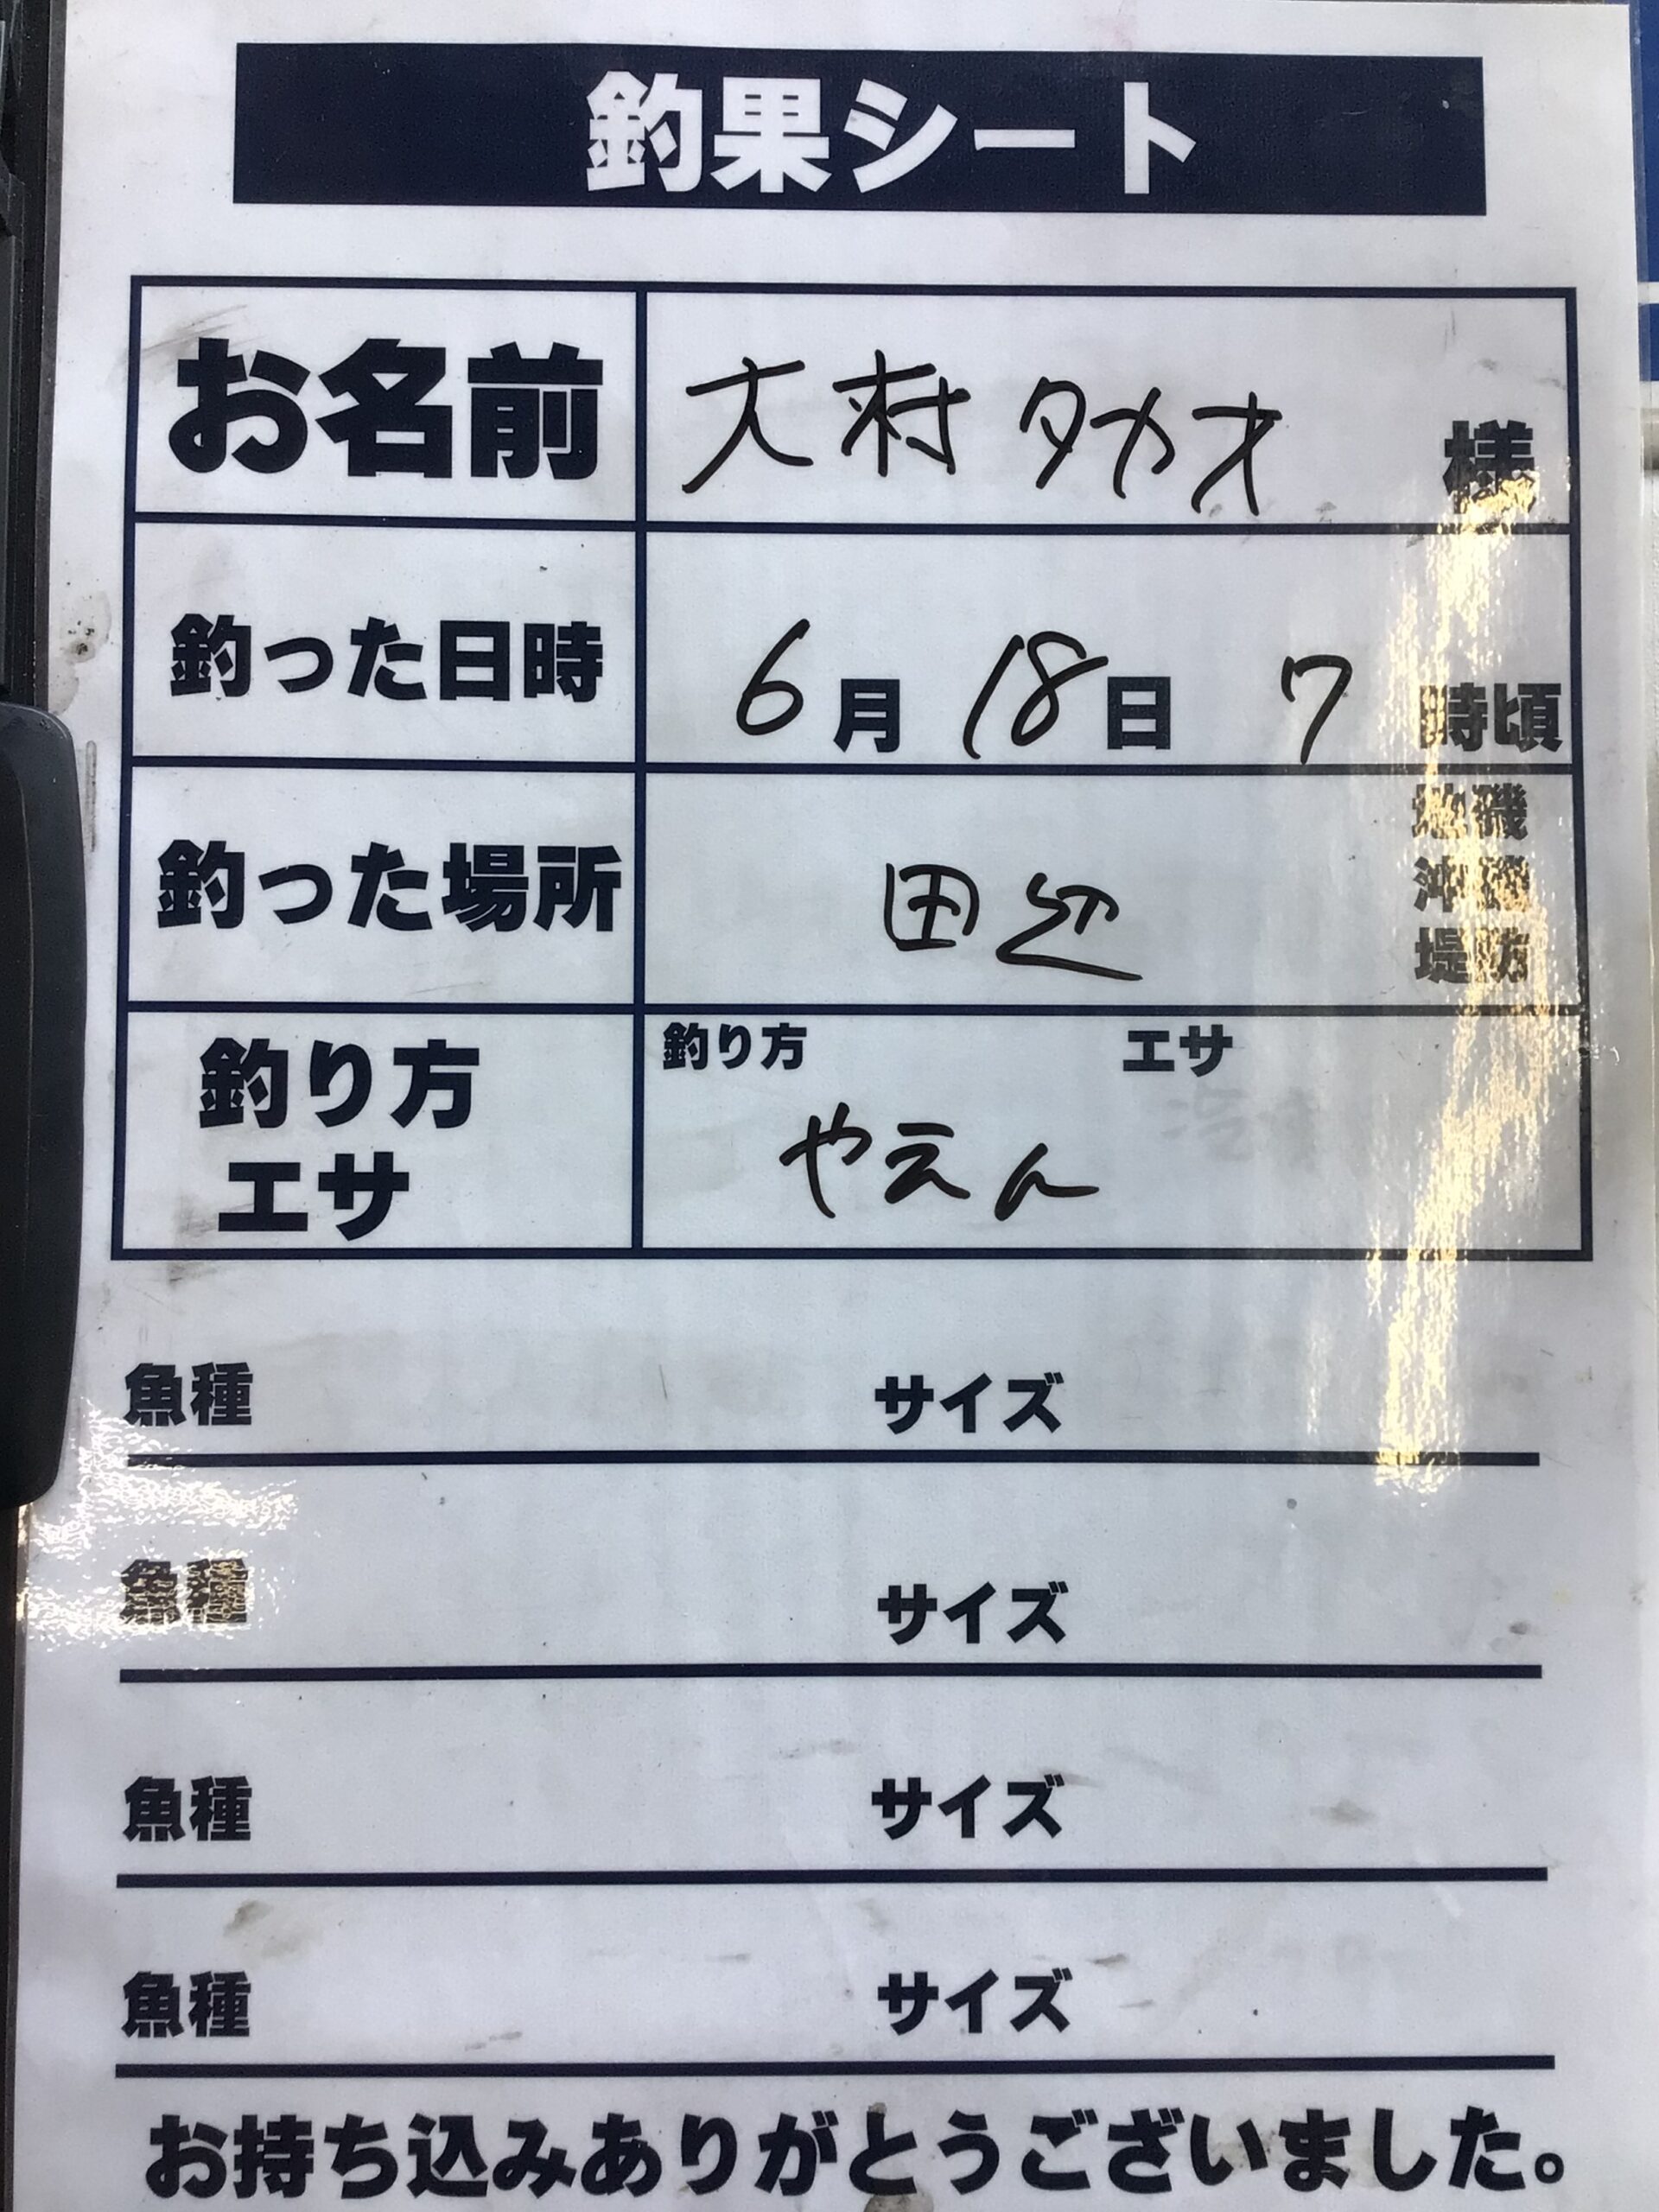 釣果シート
お名前 大村タカオ 様
釣った日時 6月18日 7時頃
地磯
釣った場所 田辺 沖磯
堤防
釣り方 エサ
釣り方
エサ
やえん
魚種 サイズ
魚種 サイズ
魚種 サイズ
魚種 サイズ
お持ち込みありがとうございました。